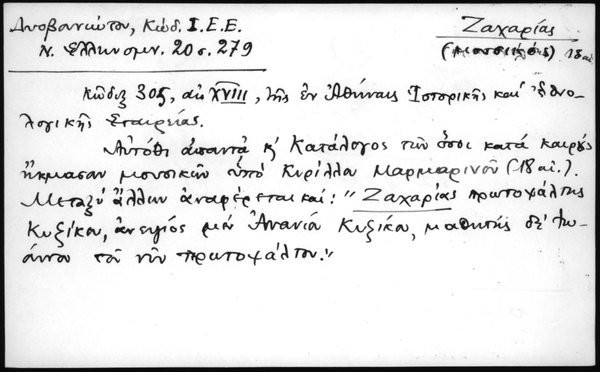 Λυοβουνιώτου, Κώδ. Ι.Ε.Ε.
Ν. Ἑλληνομν. 20 σ. 279
Ζαχαρίας
(μουσικός) 18 αἰ
Κῶδιξ 305, αἰ XVIII, τῆς ἐν Ἀθήναις Ἱστορικῆς καί Ἐθνο-
λογικῆς Ἑταιρείας.
Αὐτόθι ἀπαντᾶ κ' Κατάλογος τῶν ὅσοι κατά καιρούς
ἤκμασαν μουσικῶν ὑπό Κυρίλλου Μαρμαρινοῦ (18 αἰ.).
Μεταξύ ἄλλων ἀναφέρεται καί: "Ζαχαρίας πρωτοψάλτης
Κυζίκου, ἀνεψιός μέν Ἀνανία Κυζίκου, μαθητής δέ Ἰω-
άννου τοῦ νῦν πρωτοψάλτου."